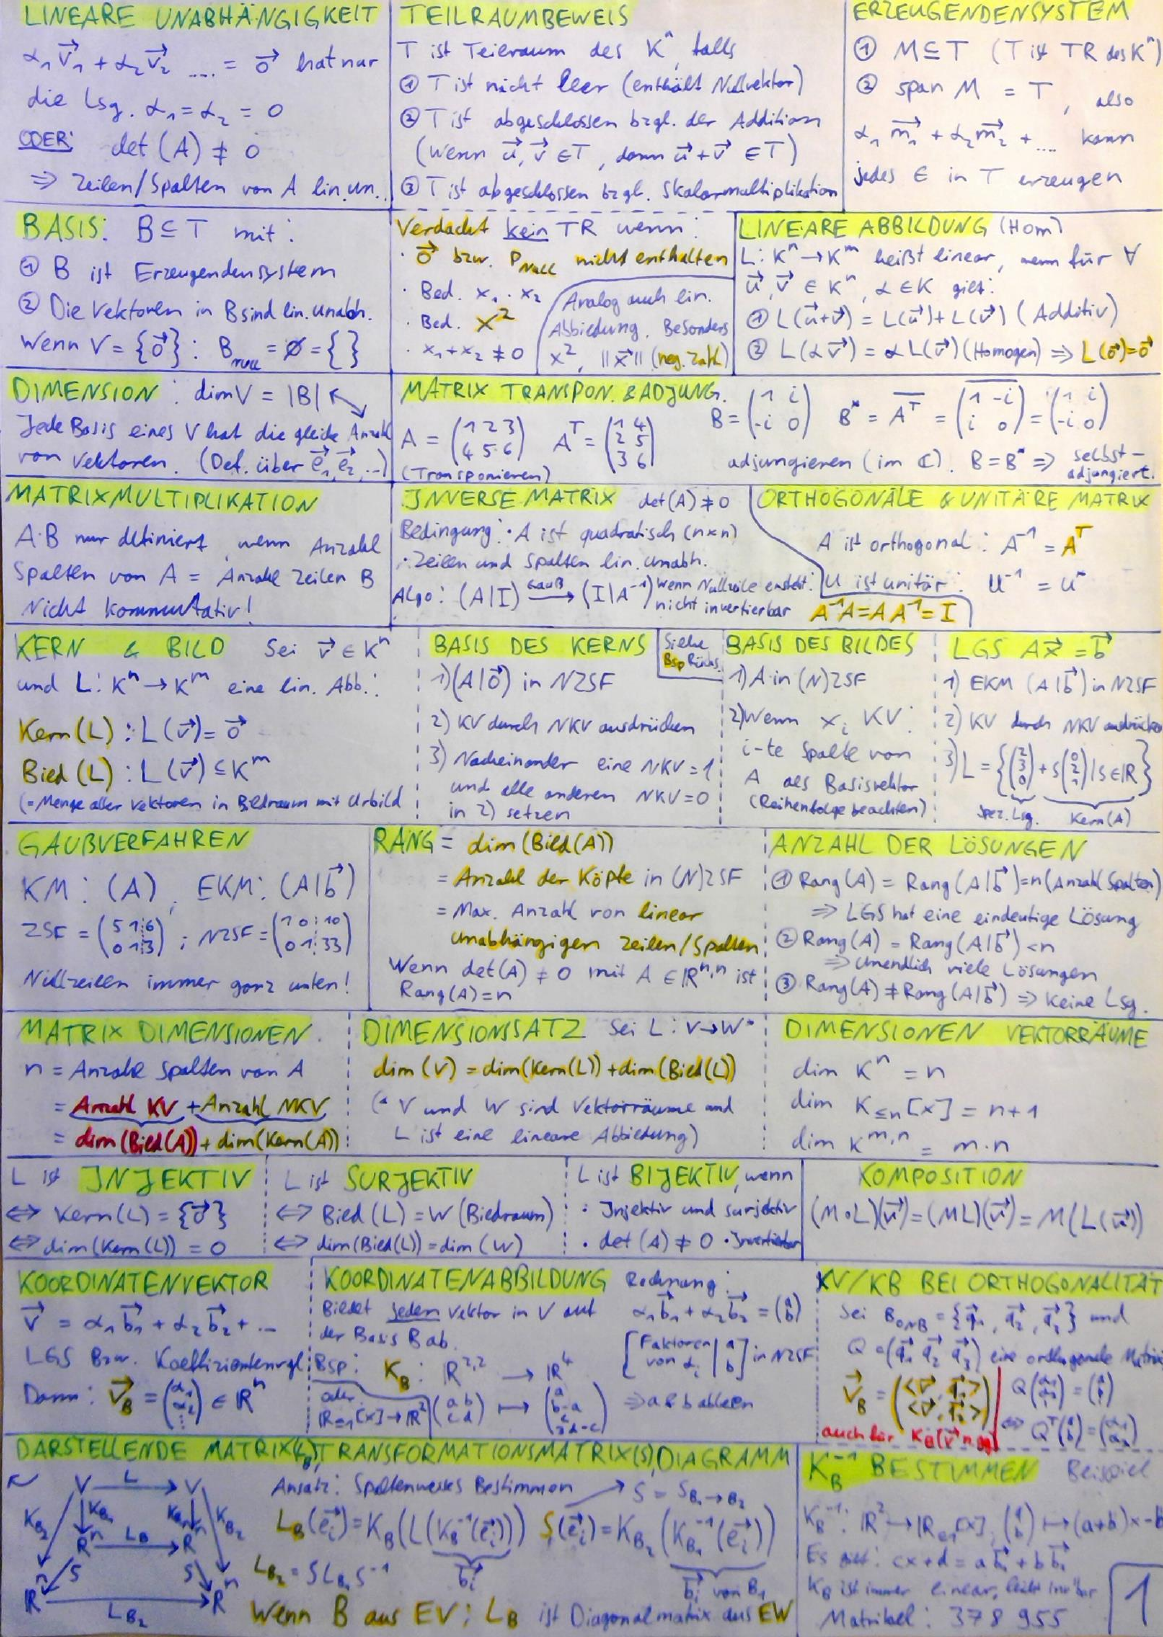 LINEARE UNABHÄNGIGKEIT
α₁v⃗₁ + α₂v⃗₂ .... = o⃗ hat nur
die Lsg. α₁ = α₂ = 0
ODER: det(A) ≠ 0
⇒ Zeilen/Spalten von A lin. un.
TEILRAUMBEWEIS
T ist Teilraum des Kⁿ, falls
① T ist nicht leer (enthält Nullvektor)
② T ist abgeschlossen bzgl. der Addition
(Wenn u⃗, v⃗ ∈ T, dann u⃗ + v⃗ ∈ T)
③ T ist abgeschlossen bzgl. Skalarmultiplikation
ERZEUGENDENSYSTEM
① M ⊆ T (T ist TR des Kⁿ)
② span M = T, also
α₁m⃗₁ + α₂m⃗₂ + .... kann
jedes ∈ in T erzeugen
BASIS: B ⊆ T mit:
① B ist Erzeugendensystem
② Die Vektoren in B sind lin. unabh.
Wenn V = {o⃗} : B_null = ∅ = { }
Verdacht kein TR wenn:
· o⃗ bzw. P_Null nicht enthalten
· Bed. x₁ · x₂
· Bed. x²
· x₁ + x₂ ≠ 0
Analog auch lin.
Abbildung. Besonders
x², ||x⃗|| (neg. Zahl)
LINEARE ABBILDUNG (Hom)
L: Kⁿ → Kᵐ heißt linear, wenn für ∀
u⃗, v⃗ ∈ Kⁿ, α ∈ K gilt:
① L(u⃗+v⃗) = L(u⃗) + L(v⃗) (Additiv)
② L(αv⃗) = αL(v⃗) (Homogen) ⇒ L(o⃗) = o⃗
DIMENSION : dim V = |B|
Jede Basis eines V hat die gleiche Anzahl
von Vektoren. (Def. über e⃗₁, e⃗₂, ...)
MATRIX TRANSPON. & ADJUNG.
A = (1 2 3 / 4 5 6) Aᵀ = (1 4 / 2 5 / 3 6)
(Transponieren)
B = (1 i / -i 0) B* = A̅ᵀ̅ = (1 -i / i 0) = (1 i / -i 0)
adjungieren (im ℂ). B = B* ⇒ selbst-
adjungiert.
MATRIXMULTIPLIKATION
A·B nur definiert, wenn Anzahl
Spalten von A = Anzahl Zeilen B
Nicht kommutativ!
INVERSE MATRIX det(A) ≠ 0
Bedingung: · A ist quadratisch (n×n)
· Zeilen und Spalten lin. unabh.
Algo: (A|I) Gauß→ (I|A⁻¹) Wenn Nullzeile entsteht:
nicht invertierbar
ORTHOGONALE & UNITÄRE MATRIX
A ist orthogonal: A⁻¹ = Aᵀ
U ist unitär: U⁻¹ = U*
A⁻¹A = AA⁻¹ = I
KERN & BILD Sei v⃗ ∈ Kⁿ
und L: Kⁿ → Kᵐ eine lin. Abb.:
Kern(L) : L(v⃗) = o⃗
Bild(L) : L(v⃗) ⊆ Kᵐ
(= Menge aller Vektoren in Bildraum mit Urbild
BASIS DES KERNS
Siehe
Bsp Rücks.
1) (A|o⃗) in NZSF
2) KV durch NKV ausdrücken
3) Nacheinander eine NKV = 1
und alle anderen NKV = 0
in 2) setzen
BASIS DES BILDES
1) A in (N)ZSF
2) Wenn xᵢ KV:
i-te Spalte von
A als Basisvektor
(Reihenfolge beachten)
LGS Ax⃗ = b⃗
1) EKM (A|b⃗) in NZSF
2) KV durch NKV ausdrücken
3) L = {(2 / 3 / 0) + s(0 / 2 / 1) | s ∈ ℝ}
Spez. Lsg. Kern(A)
GAUßVERFAHREN
KM: (A), EKM: (A|b⃗)
ZSF = (5 1 | 6 / 0 1 | 3) ; NZSF = (1 0 | 10 / 0 1 | 33)
Nullzeilen immer ganz unten!
RANG = dim(Bild(A))
= Anzahl der Köpfe in (N)ZSF
= Max. Anzahl von linear
unabhängigen Zeilen/Spalten
Wenn det(A) ≠ 0 mit A ∈ ℝⁿ'ⁿ ist
Rang(A) = n
ANZAHL DER LÖSUNGEN
① Rang(A) = Rang(A|b⃗) = n (Anzahl Spalten)
⇒ LGS hat eine eindeutige Lösung
② Rang(A) = Rang(A|b⃗) < n
⇒ Unendlich viele Lösungen
③ Rang(A) ≠ Rang(A|b⃗) ⇒ Keine Lsg.
MATRIX DIMENSIONEN
n = Anzahl Spalten von A
= Anzahl KV + Anzahl NKV
= dim(Bild(A)) + dim(Kern(A))
DIMENSIONSSATZ Sei L: V → W*
dim(V) = dim(Kern(L)) + dim(Bild(L))
(* V und W sind Vektorräume und
L ist eine lineare Abbildung)
DIMENSIONEN VEKTORRÄUME
dim Kⁿ = n
dim K≤n[x] = n+1
dim Kᵐ'ⁿ = m·n
L ist INJEKTIV
⇔ Kern(L) = {o⃗}
⇔ dim(Kern(L)) = 0
L ist SURJEKTIV
⇔ Bild(L) = W (Bildraum)
⇔ dim(Bild(L)) = dim(W)
L ist BIJEKTIV, wenn
· Injektiv und surjektiv
· det(A) ≠ 0 · Invertierbar
KOMPOSITION
(M∘L)(v⃗) = (ML)(v⃗) = M(L(v⃗))
KOORDINATENVEKTOR
v⃗ = α₁b⃗₁ + α₂b⃗₂ + ...
LGS Bzw. Koeffizientenvgl.
Dann: v⃗_B = (α₁ / α₂ / ⋮) ∈ ℝⁿ
KOORDINATENABBILDUNG
Bildet jeden Vektor in V auf
der Basis B ab.
Bsp: K_B: ℝ²'² → ℝ⁴
oder
ℝ≤1[x] → ℝ² (a b / c d) ↦ (a / b-a / c / d-c)
Rechnung:
α₁b⃗₁ + α₂b⃗₂ = (a / b)
[Faktoren von αᵢ | a / b] in NZSF
⇒ a & b ablesen
KV/KB BEI ORTHOGONALITÄT
Sei B_ONB = {q⃗₁, q⃗₂, q⃗₃} und
Q = (q⃗₁ q⃗₂ q⃗₃) eine orthogonale Matrix
v⃗_B = (<v⃗, q⃗₁> / <v⃗, q⃗₂>)
Q(α₁ / α₂) = (a / b)
⇔ Qᵀ(a / b) = (α₁ / α₂)
auch für
DARSTELLENDE MATRIX(L_B), TRANSFORMATIONSMATRIX(S), DIAGRAMM
V L V
K_B₂ K_B₁ K_B₁ K_B₂
ℝⁿ L_B ℝⁿ
S S
ℝⁿ L_B₂ ℝⁿ
Ansatz: Spaltenweises Bestimmen
S = S_B₁→B₂
L_B(e⃗ᵢ) = K_B(L(K_B⁻¹(e⃗ᵢ))) S(e⃗ᵢ) = K_B₂(K_B₁⁻¹(e⃗ᵢ))
b⃗ᵢ
b⃗ᵢ von B₁
L_B₂ = S L_B₁ S⁻¹
Wenn B aus EV: L_B ist Diagonalmatrix aus EW
K_B⁻¹ BESTIMMEN Beispiel
K_B⁻¹: ℝ² → ℝ≤1[x], (a / b) ↦ (a+b)x-b
Es gilt: cx+d = ab⃗₁ + bb⃗₂
K_B ist immer linear,
Matrikel: 378 955
1